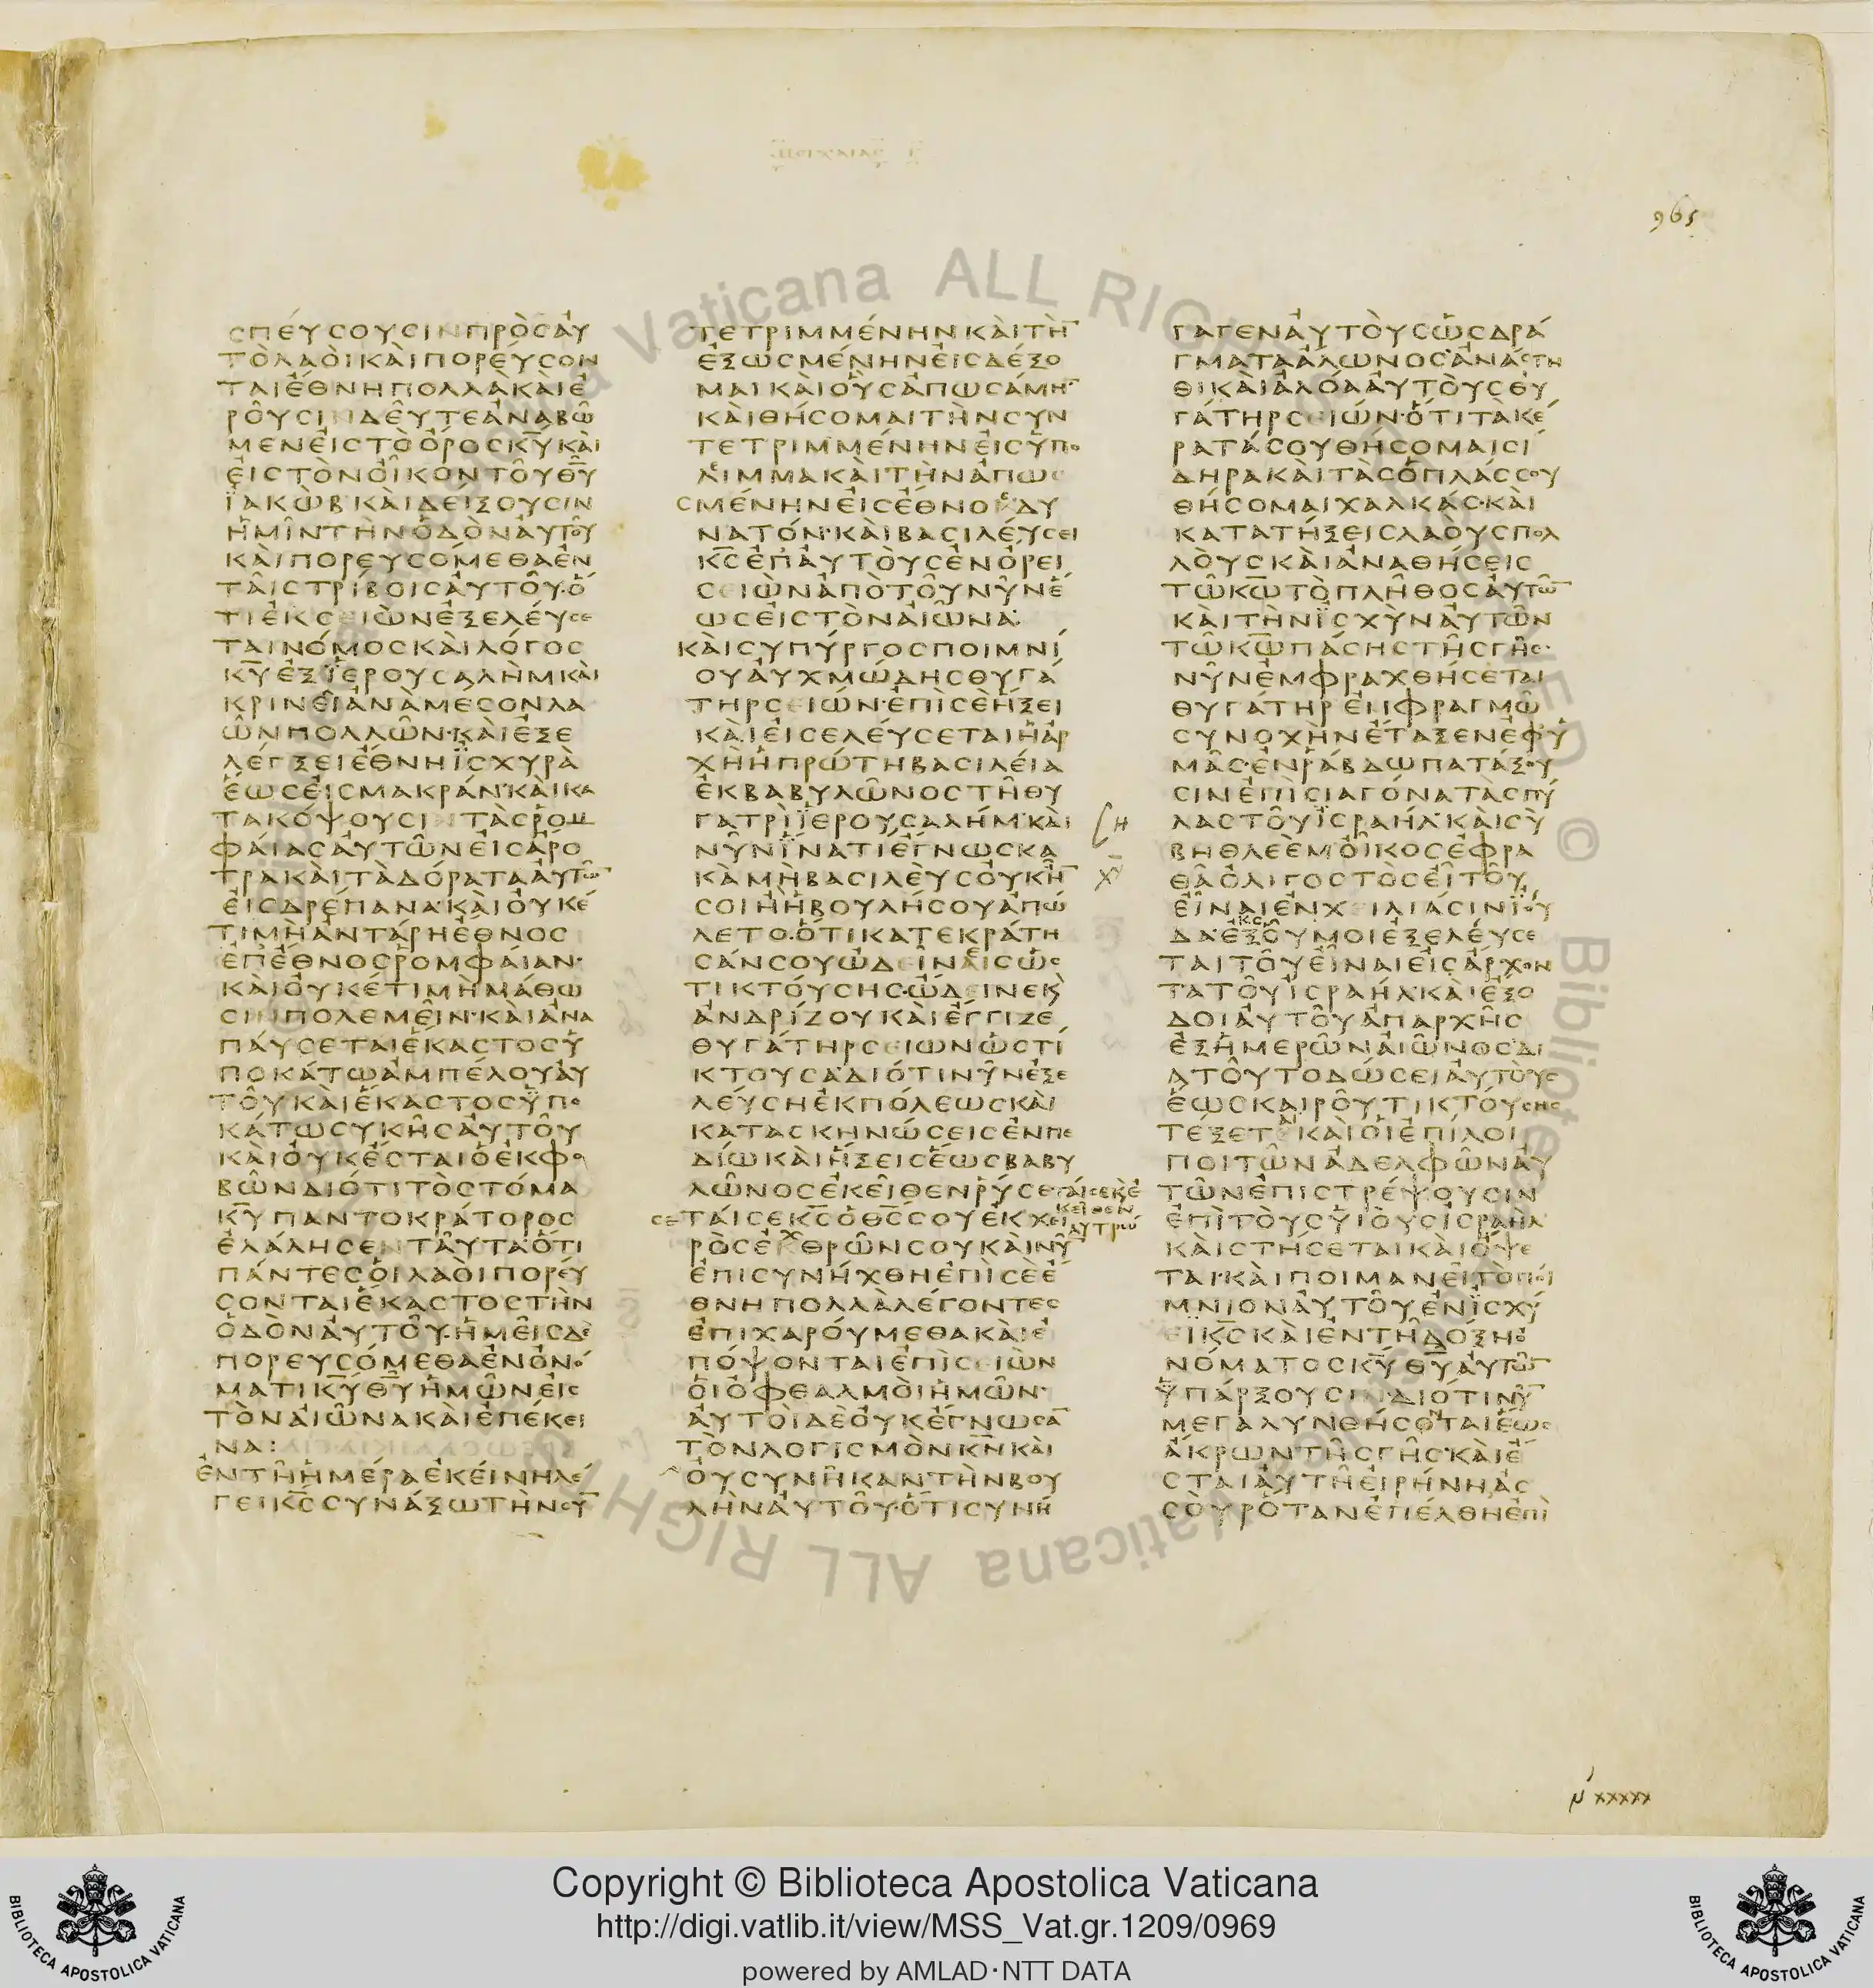 ΜΕΙΧΑΙΑΣ
965
ϹΠΕΎϹΟΥϹΙΝΠΡῸϹΑΥ
ΤῸΛΑΟῚΚΑῚΠΟΡΕΎϹΟΝ
ΤΑΙΈΘΝΗΠΟΛΛᾺΚΑῚΕ
ΡΟΥϹΙΝΔΕΥΤΕΑΝΑΒΩ
ΜΕΝΕΙϹΤΟΟΡΟϹΚΥΚΑΙ
ΕΙϹΤΟΝΟΙΚΟΝΤΟΥΘΥ
ΪΑΚΩΒΚΑΙΔΕΙΞΟΥϹΙΝ
ΗΜΙΝΤΗΝΟΔΟΝΑΥΤΟΥ
ΚΑΙΠΟΡΕΥϹΟΜΕΘΑΕΝ
ΤΑΙϹΤΡΙΒΟΙϹΑΥΤΟΥ·Ο
ΤΙΕΚϹΕΙΩΝΕΞΕΛΕΥϹΕ
ΤΑΙΝΟΜΟϹΚΑΙΛΟΓΟϹ
ΚΥΕΞΪΕΡΟΥϹΑΛΗΜΚΑΙ
ΚΡΙΝΕΙΑΝΑΜΕϹΟΝΛΑ
ΩΝΠΟΛΛΩΝ·ΚΑΙΕΞΕ
ΛΕΓΞΕΙΕΘΝΗΪϹΧΥΡΑ
ΕΩϹΕΙϹΜΑΚΡΑΝ·ΚΑΙΚΑ
ΤΑΚΟΨΟΥϹΙΝΤΑϹΡΟΜ
ΦΑΙΑϹΑΥΤΩΝΕΙϹΑΡΟ
ΤΡΑΚΑΙΤΑΔΟΡΑΤΑΑΥΤΩ
ΕΙϹΔΡΕΠΑΝΑ·ΚΑΙΟΥΚΕ
ΤΙΜΗΑΝΤΑΡΗΕΘΝΟϹ
ΕΠΕΘΝΟϹΡΟΜΦΑΙΑΝ·
ΚΑΙΟΥΚΕΤΙΜΗΜΑΘΩ
ϹΙΝΠΟΛΕΜΕΙΝ·ΚΑΙΑΝΑ
ΠΑΥϹΕΤΑΙΕΚΑϹΤΟϹΥ
ΠΟΚΑΤΩΑΜΠΕΛΟΥΑΥ
ΤΟΥΚΑΙΕΚΑϹΤΟϹΫΠΟ
ΚΑΤΩϹΥΚΗϹΑΥΤΟΥ
ΚΑΙΟΥΚΕϹΤΑΙΟΕΚΦΟ
ΒΩΝΔΙΟΤΙΤΟϹΤΟΜΑ
ΚΥΠΑΝΤΟΚΡΑΤΟΡΟϹ
ΕΛΑΛΗϹΕΝΤΑΥΤΑ·ΟΤΙ
ΠΑΝΤΕϹΟΙΛΑΟΙΠΟΡΕΥ
ϹΟΝΤΑΙΕΚΑϹΤΟϹΤΗΝ
ΟΔΟΝΑΥΤΟΥ·ΗΜΕΙϹΔΕ
ΠΟΡΕΥϹΟΜΕΘΑΕΝΟΝΟ
ΜΑΤΙΚΥΘΥΗΜΩΝΕΙϹ
ΤΟΝΑΙΩΝΑΚΑΙΕΠΕΚΕΙ
ΝΑ:
ΕΝΤΗΗΜΕΡΑΕΚΕΙΝΗΛΕ
ΓΕΙΚϹϹΥΝΑΞΩΤΗΝϹΥ
ΤΕΤΡΙΜΜΕΝΗΝΚΑΙΤΗ
ΕΞΩϹΜΕΝΗΝΕΙϹΔΕΞΟ
ΜΑΙΚΑΙΟΥϹΑΠΩϹΑΜΗ·
ΚΑΙΘΗϹΟΜΑΙΤΗΝϹΥΝ
ΤΕΤΡΙΜΜΕΝΗΝΕΙϹΫΠΟ
ΛΙΜΜΑΚΑΙΤΗΝΑΠΩϹ
ϹΜΕΝΗΝΕΙϹΕΘΝΟϹΔΥ
ΝΑΤΟΝ·ΚΑΙΒΑϹΙΛΕΥϹΕΙ
ΚϹΕΠΑΥΤΟΥϹΕΝΟΡΕΙ
ϹΕΙΩΝΑΠΟΤΟΥΝΥΝΕ
ΩϹΕΙϹΤΟΝΑΙΩΝΑ·
ΚΑΙϹΥΠΥΡΓΟϹΠΟΙΜΝΙ
ΟΥΑΥΧΜΩΔΗϹΘΥΓΑ
ΤΗΡϹΕΙΩΝ·ΕΠΙϹΕΗΞΕΙ
ΚΑΙΕΙϹΕΛΕΥϹΕΤΑΙΗΑΡ
ΧΗΗΠΡΩΤΗΒΑϹΙΛΕΙΑ
ΕΚΒΑΒΥΛΩΝΟϹΤΗΘΥ
ΓΑΤΡΙΪΕΡΟΥϹΑΛΗΜ·ΚΑΙ
ΝΥΝΪΝΑΤΙΕΓΝΩϹΚΑ
ΚΑΜΗΒΑϹΙΛΕΥϹΟΥΚΗ
ϹΟΙΗΗΒΟΥΛΗϹΟΥΑΠΩ
ΛΕΤΟ·ΟΤΙΚΑΤΕΚΡΑΤΗ
ϹΑΝϹΟΥΩΔΕΙΝΑΙϹΩϹ
ΤΙΚΤΟΥϹΗϹ·ΩΔΕΙΝΕΚ
ΑΝΔΡΙΖΟΥΚΑΙΕΓΓΙΖΕ
ΘΥΓΑΤΗΡϹΕΙΩΝΩϹΤΙ
ΚΤΟΥϹΑ·ΔΙΟΤΙΝΥΝΕΞΕ
ΛΕΥϹΗΕΚΠΟΛΕΩϹΚΑΙ
ΚΑΤΑϹΚΗΝΩϹΕΙϹΕΝΠΕ
ΔΙΩΚΑΙΗΞΕΙϹΕΩϹΒΑΒΥ
ΛΩΝΟϹΕΚΕΙΘΕΝΡΥϹΕ
ϹΕΤΑΙϹΕΚϹΟΘϹϹΟΥΕΚΧΕΙ
ΡΟϹΕΧΘΡΩΝϹΟΥΚΑΙΝΥ
ΕΠΙϹΥΝΗΧΘΗΕΠΙϹΕΕ
ΘΝΗΠΟΛΛΑΛΕΓΟΝΤΕϹ
ΕΠΙΧΑΡΟΥΜΕΘΑΚΑΙΕ
ΠΟΨΟΝΤΑΙΕΠΙϹΕΙΩΝ
ΟΙΟΦΘΑΛΜΟΙΗΜΩΝ·
ΑΥΤΟΙΔΕΟΥΚΕΓΝΩϹΑ
ΤΟΝΛΟΓΙϹΜΟΝΚΝΚΑΙ
ΟΥϹΥΝΗΚΑΝΤΗΝΒΟΥ
ΛΗΝΑΥΤΟΥ·ΟΤΙϹΥΝΗ
ΓΑΓΕΝΑΥΤΟΥϹΩϹΔΡΑ
ΓΜΑΤΑΑΛΩΝΟϹ·ΑΝΑϹΤΗ
ΘΙΚΑΙΑΛΟΑΑΥΤΟΥϹΘΥ
ΓΑΤΗΡϹΕΙΩΝ·ΟΤΙΤΑΚΕ
ΡΑΤΑϹΟΥΘΗϹΟΜΑΙϹΙ
ΔΗΡΑΚΑΙΤΑϹΟΠΛΑϹϹΟΥ
ΘΗϹΟΜΑΙΧΑΛΚΑϹ·ΚΑΙ
ΚΑΤΑΤΗΞΕΙϹΛΑΟΥϹΠΟΛ
ΛΟΥϹΚΑΙΑΝΑΘΗϹΕΙϹ
ΤΩΚΩΤΟΠΛΗΘΟϹΑΥΤΩ
ΚΑΙΤΗΝΪϹΧΥΝΑΥΤΩΝ
ΤΩΚΩΠΑϹΗϹΤΗϹΓΗϹ·
ΝΥΝΕΜΦΡΑΧΘΗϹΕΤΑΙ
ΘΥΓΑΤΗΡΕΜΦΡΑΓΜΩ
ϹΥΝΟΧΗΝΕΤΑΞΕΝΕΦΥ
ΜΑϹ·ΕΝΡΑΒΔΩΠΑΤΑΞΟΥ
ϹΙΝΕΠΙϹΙΑΓΟΝΑΤΑϹΠΥ
ΛΑϹΤΟΥΙϹΡΑΗΛ·ΚΑΙϹΥ
ΒΗΘΛΕΕΜΟΙΚΟϹΕΦΡΑ
ΘΑΟΛΙΓΟϹΤΟϹΕΙΤΟΥ
ΕΙΝΑΙΕΝΧΕΙΛΙΑϹΙΝΪΟΥ
ΔΑ·ΕΞΟΥΜΟΙΕΞΕΛΕΥϹΕ
ΤΑΙΤΟΥΕΙΝΑΙΕΙϹΑΡΧΟΝ
ΤΑΤΟΥΙϹΡΑΗΛ·ΚΑΙΕΞΟ
ΔΟΙΑΥΤΟΥΑΠΑΡΧΗϹ
ΕΞΗΜΕΡΩΝΑΙΩΝΟϹ·ΔΙ
ΑΤΟΥΤΟΔΩϹΕΙΑΥΤΟΥϹ
ΕΩϹΚΑΙΡΟΥΤΙΚΤΟΥϹΗϹ
ΤΕΞΕΤΑΙΚΑΙΟΙΕΠΙΛΟΙ
ΠΟΙΤΩΝΑΔΕΛΦΩΝΑΥ
ΤΩΝΕΠΙϹΤΡΕΨΟΥϹΙΝ
ΕΠΙΤΟΥϹΥΙΟΥϹΙϹΡΑΗΛ
ΚΑΙϹΤΗϹΕΤΑΙΚΑΙΟΨΕ
ΤΑΙ·ΚΑΙΠΟΙΜΑΝΕΙΤΟΠΟΙ
ΜΝΙΟΝΑΥΤΟΥΕΝΪϹΧΥ
ΕΙΚϹΚΑΙΕΝΤΗΔΟΞΗΟ
ΝΟΜΑΤΟϹΚΥΘΥΑΥΤΩ
ΫΠΑΡΞΟΥϹΙΝ·ΔΙΟΤΙΝΥ
ΜΕΓΑΛΥΝΘΗϹΟΝΤΑΙΕΩϹ
ΑΚΡΩΝΤΗϹΓΗϹ·ΚΑΙΕ
ϹΤΑΙΑΥΤΗΕΙΡΗΝΗΑϹ
ϹΟΥΡΟΤΑΝΕΠΕΛΘΗΕΠΙ
Copyright © Biblioteca Apostolica Vaticana
http://digi.vatlib.it/view/MSS_Vat.gr.1209/0969
powered by AMLAD·NTT DATA
BIBLIOTECA APOSTOLICA VATICANA
BIBLIOTECA APOSTOLICA VATICANA